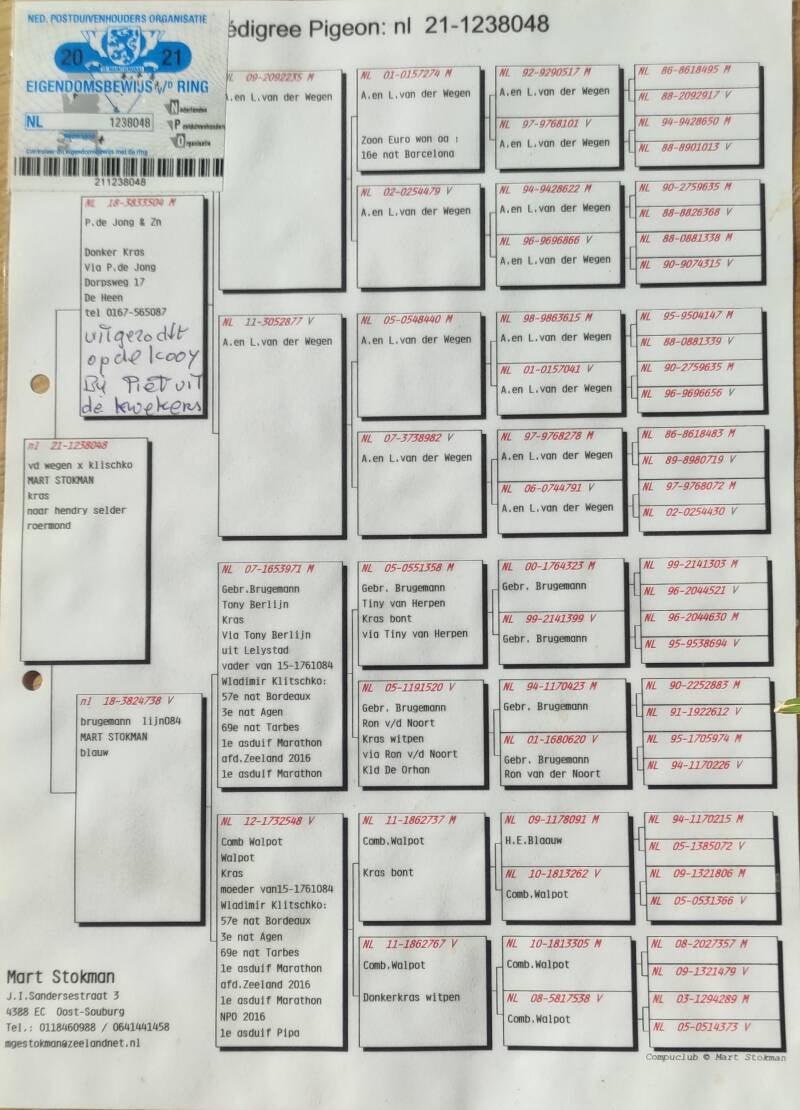 NED. POSTDUIVENHOUDERS ORGANISATIE
20 21
EIGENDOMSBEWIJS v/d RING
NL 1238048
Nederlandse
Postduivenhouders
Organisatie
211238048
édigree Pigeon: nl 21-1238048
NL 18-3833504 M
P.de Jong & Zn
Donker Kras
Via P.de Jong
Dorpsweg 17
De Heen
tel 0167-565087
op de kooy
By Piet uit
de kwekers
nl 21-1238048
vd wegen x klischko
MART STOKMAN
kras
naar hendry selder
roermond
nl 18-3824738 V
brugemann lijn084
MART STOKMAN
blauw
NL 09-2092235 M
A.en L.van der Wegen
NL 11-3052877 V
A.en L.van der Wegen
NL 07-1653971 M
Gebr.Brugemann
Tony Berlijn
Kras
Via Tony Berlijn
uit Lelystad
vader van 15-1761084
Wladimir Klitschko:
57e nat Bordeaux
3e nat Agen
69e nat Tarbes
1e asduif Marathon
afd.Zeeland 2016
1e asduif Marathon
NL 12-1732548 V
Comb Walpot
Walpot
Kras
moeder van15-1761084
Wladimir Klitschko:
57e nat Bordeaux
3e nat Agen
69e nat Tarbes
1e asduif Marathon
afd.Zeeland 2016
1e asduif Marathon
NPO 2016
1e asduif Pipa
NL 01-0157274 M
A.en L.van der Wegen
Zoon Euro won oa :
16e nat Barcelona
NL 02-0254479 V
A.en L.van der Wegen
NL 05-0548440 M
A.en L.van der Wegen
NL 07-3738982 V
A.en L.van der Wegen
NL 05-0551358 M
Gebr. Brugemann
Tiny van Herpen
Kras bont
via Tiny van Herpen
NL 05-1191520 V
Gebr. Brugemann
Ron v/d Noort
Kras witpen
via Ron v/d Noort
Kld De Orhan
NL 11-1862737 M
Comb.Walpot
Kras bont
NL 11-1862767 V
Comb.Walpot
Donkerkras witpen
NL 92-9290517 M
A.en L.van der Wegen
NL 97-9768101 V
A.en L.van der Wegen
NL 94-9428622 M
A.en L.van der Wegen
NL 96-9696866 V
A.en L.van der Wegen
NL 98-9863615 M
A.en L.van der Wegen
NL 01-0157041 V
A.en L.van der Wegen
NL 97-9768278 M
A.en L.van der Wegen
NL 06-0744791 V
A.en L.van der Wegen
NL 00-1764323 M
Gebr. Brugemann
NL 99-2141399 V
Gebr. Brugemann
NL 94-1170423 M
Gebr. Brugemann
NL 01-1680620 V
Gebr. Brugemann
Ron van der Noort
NL 09-1178091 M
H.E.Blaauw
NL 10-1813262 V
Comb.Walpot
NL 10-1813305 M
Comb.Walpot
NL 08-5817538 V
Comb.Walpot
NL 86-8618495 M
NL 88-2092917 V
NL 94-9428650 M
NL 88-8901013 V
NL 90-2759635 M
NL 88-8826368 V
NL 88-0881338 M
NL 90-9074315 V
NL 95-9504147 M
NL 88-0881339 V
NL 90-2759635 M
NL 96-9696656 V
NL 86-8618483 M
NL 89-8980719 V
NL 97-9768072 M
NL 02-0254430 V
NL 99-2141303 M
NL 96-2044521 V
NL 96-2044630 M
NL 95-9538694 V
NL 90-2252883 M
NL 91-1922612 V
NL 95-1705974 M
NL 94-1170226 V
NL 94-1170215 M
NL 05-1385072 V
NL 09-1321806 M
NL 05-0531366 V
NL 08-2027357 M
NL 09-1321479 V
NL 03-1294289 M
NL 05-0514373 V
Mart Stokman
J.I.Sandersestraat 3
4388 EC Oost-Souburg
Tel.: 0118460988 / 0641441458
mgestokman@zeelandnet.nl
Compuclub © Mart Stokman